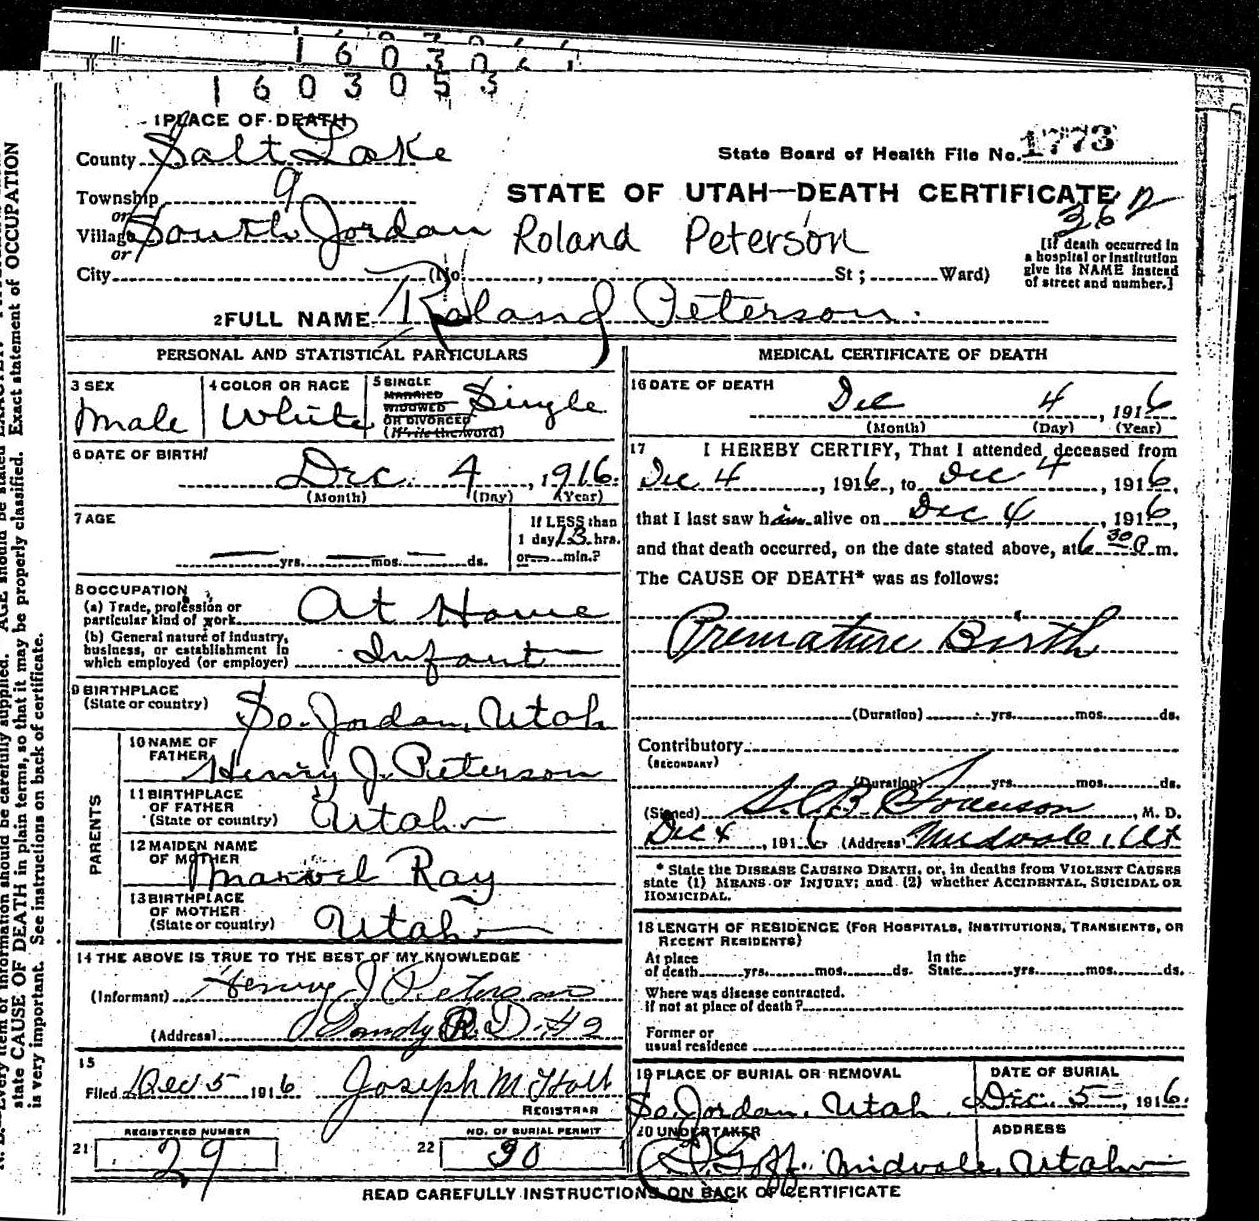 1603053
1 PLACE OF DEATH
County Salt Lake
State Board of Health File No. 1773
Township 9
or
STATE OF UTAH—DEATH CERTIFICATE
Village South Jordan
Roland Peterson
or
City (No. , St; Ward)
[If death occurred in
a hospital or institution
give its NAME instead
of street and number.]
2 FULL NAME Roland Peterson
PERSONAL AND STATISTICAL PARTICULARS
3 SEX
Male
4 COLOR OR RACE
White
5 SINGLE
MARRIED
WIDOWED
OR DIVORCED
(Write the word)
Single
6 DATE OF BIRTH
Dec. 4, 1916.
(Month) (Day) (Year)
7 AGE
yrs. mos. ds.
If LESS than
1 day 13 hrs.
or min.?
8 OCCUPATION
(a) Trade, profession or
particular kind of work At Home
(b) General nature of industry,
business, or establishment in
which employed (or employer) Infant
9 BIRTHPLACE
(State or country) So. Jordan, Utah
PARENTS
10 NAME OF
FATHER Henry J. Peterson
11 BIRTHPLACE
OF FATHER
(State or country) Utah
12 MAIDEN NAME
OF MOTHER Ray
13 BIRTHPLACE
OF MOTHER
(State or country) Utah
14 THE ABOVE IS TRUE TO THE BEST OF MY KNOWLEDGE
(Informant) Henry J Peterson
(Address) Sandy R.D. #2
15
Filed Dec 5 1916 Joseph M Holt
REGISTRAR
REGISTERED NUMBER
21 29
NO. OF BURIAL PERMIT
22 30
MEDICAL CERTIFICATE OF DEATH
16 DATE OF DEATH
Dec 4, 1916
(Month) (Day) (Year)
17 I HEREBY CERTIFY, That I attended deceased from
Dec 4, 1916, to Dec 4, 1916,
that I last saw him alive on Dec 4, 1916,
and that death occurred, on the date stated above, at 6 30 P.m.
The CAUSE OF DEATH* was as follows:
Premature Birth
(Duration) yrs. mos. ds.
Contributory
(SECONDARY)
(Duration) yrs. mos. ds.
(Signed) Swenson, M. D.
Dec 4, 1916 (Address) Midvale, Ut
* State the DISEASE CAUSING DEATH, or, in deaths from VIOLENT CAUSES
state (1) MEANS OF INJURY; and (2) whether ACCIDENTAL, SUICIDAL OR
HOMICIDAL.
18 LENGTH OF RESIDENCE (FOR HOSPITALS, INSTITUTIONS, TRANSIENTS, OR
RECENT RESIDENTS)
At place
of death yrs. mos. ds.
In the
State yrs. mos. ds.
Where was disease contracted.
if not at place of death?
Former or
usual residence
19 PLACE OF BURIAL OR REMOVAL
So. Jordan, Utah.
DATE OF BURIAL
Dec. 5, 1916.
20 UNDERTAKER
Goff.
ADDRESS
Midvale, Utah
READ CAREFULLY INSTRUCTIONS ON BACK OF CERTIFICATE
state CAUSE OF DEATH in plain terms, so that it may be properly classified. Exact statement of OCCUPATION
is very important. See instructions on back of certificate.